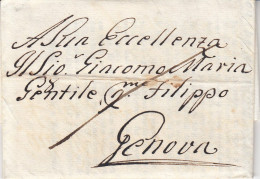 A Sua Eccellenza
Il Sig.r Giacomo Maria
Gentile, q.m Filippo
Genova